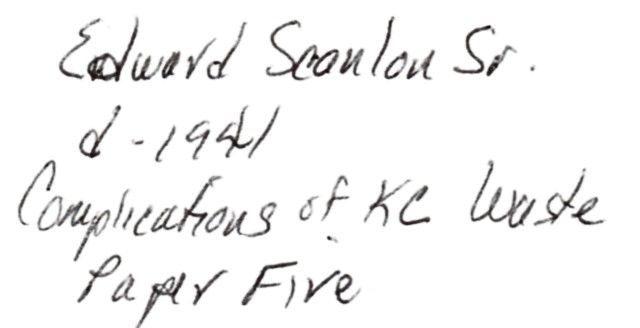 Edward Scanlon Sr.
d - 1941
Complications of KC Waste
Paper Fire